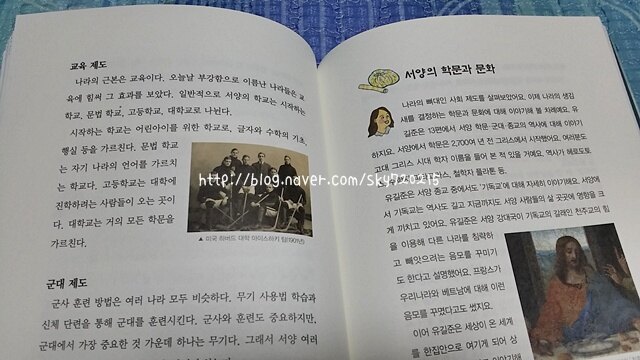 교육 제도
나라의 근본은 교육이다. 오늘날 부강함으로 이름난 나라들은 교
육에 힘써 그 효과를 보았다. 일반적으로 서양의 학교는 시작하는
학교, 문법 학교, 고등학교, 대학교로 나뉜다.
시작하는 학교는 어린이를 위한 학교로, 글자와 수학의 기초,
행실 등을 가르친다. 문법 학교
는 자기 나라의 언어를 가르치
는 학교다. 고등학교는 대학에
진학하려는 사람들이 오는 곳이
다. 대학교는 거의 모든 학문을
가르친다.
▲ 미국 하버드 대학 아이스하키 팀(1901년)
군대 제도
군사 훈련 방법은 여러 나라 모두 비슷하다. 무기 사용법 학습과
신체 단련을 통해 군대를 훈련시킨다. 군사와 훈련도 중요하지만,
군대에서 가장 중요한 것 가운데 하나는 무기다. 그래서 서양 여러
http://blog.naver.com/sky720216
서양의 학문과 문화
나라의 뼈대인 사회 제도를 살펴보았어요. 이제 나라의 생김
새를 결정하는 학문과 문화에 대해 이야기해 볼 차례예요. 유
길준은 13편에서 서양 학문·군대·종교의 역사에 대해 이야기
하지요. 서양에서 학문은 2,700여 년 전 그리스에서 시작했어요. 여러분도
고대 그리스 시대 학자 이름을 들어 본 적 있을 거예요. 역사가 헤로도토
스, 철학자 플라톤 등.
유길준은 서양 종교 중에서도 '기독교'에 대해 자세히 이야기해요. 서양에
서 기독교는 역사도 길고 지금까지도 서양 사람들의 삶 곳곳에 영향을 크
게 끼치고 있어요. 유길준은 서양 강대국이 기독교의 갈래인 천주교의 힘
을 이용해 다른 나라를 침략하
고 빼앗으려는 음모를 꾸미기
도 한다고 설명했어요. 프랑스가
우리나라와 베트남에 대해 이런
음모를 꾸몄다고도 썼지요.
이어 유길준은 세상이 온 세계
를 한집안으로 여기게 되어 상